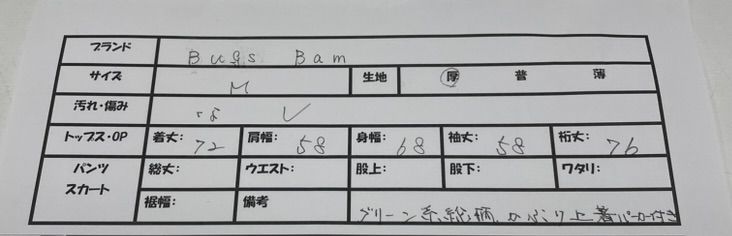 ブランド Bugs Bam
サイズ M 生地 厚 普 薄
汚れ・傷み なし
トップス・OP 着丈: 72 肩幅: 58 身幅: 68 袖丈: 58 裄丈: 76
パンツ 総丈: ウエスト: 股上: 股下: ワタリ:
スカート
裾幅: 備考 グリーン系総柄、かぶり上着パーカー付き